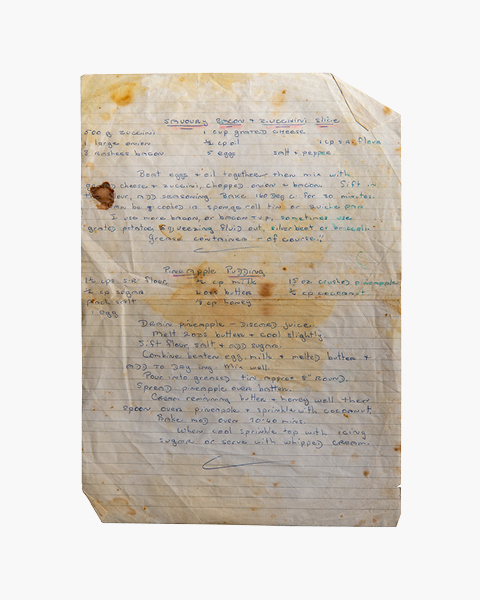 SAVOURY BACON & ZUCCINNI SLICE
500 g ZUCCINI 1 cup GRATED CHEESE
1 large onion ½ cp oil 1 cp S.R. flour
3 rashers bacon 5 eggs salt & pepper
Beat eggs & oil together then mix with
cheese & zuccini, chopped onion & bacon. Sift in
flour, add seasoning. Bake 160 deg C for 30 minutes.
be cooked in sponge roll tin or quiche pan
I use more bacon, or bacon T.V.P., sometimes use
grated potatoes squeezing fluid out, silverbeet or brocolli.
Grease container - of course!!
Pineapple Pudding
1½ cps S.R flour ½ cp milk 15 oz crushed pineapple
½ cp sugar 4 ozs butter ½ cp coconut
pinch salt ¼ cp honey
1 egg
Drain pineapple - discard juice.
Melt 2ozs butter & cool slightly
Sift flour, salt & add sugar.
Combine beaten egg, milk & melted butter &
add to dry ing. Mix well.
Pour into greased tin approx 8" round.
Spread pineapple over batter.
Cream remaining butter & honey well then
spoon over pineapple & sprinkle with coconut.
Bake mod oven 30-40 mins.
When cool sprinkle top with icing
sugar or serve with whipped cream.